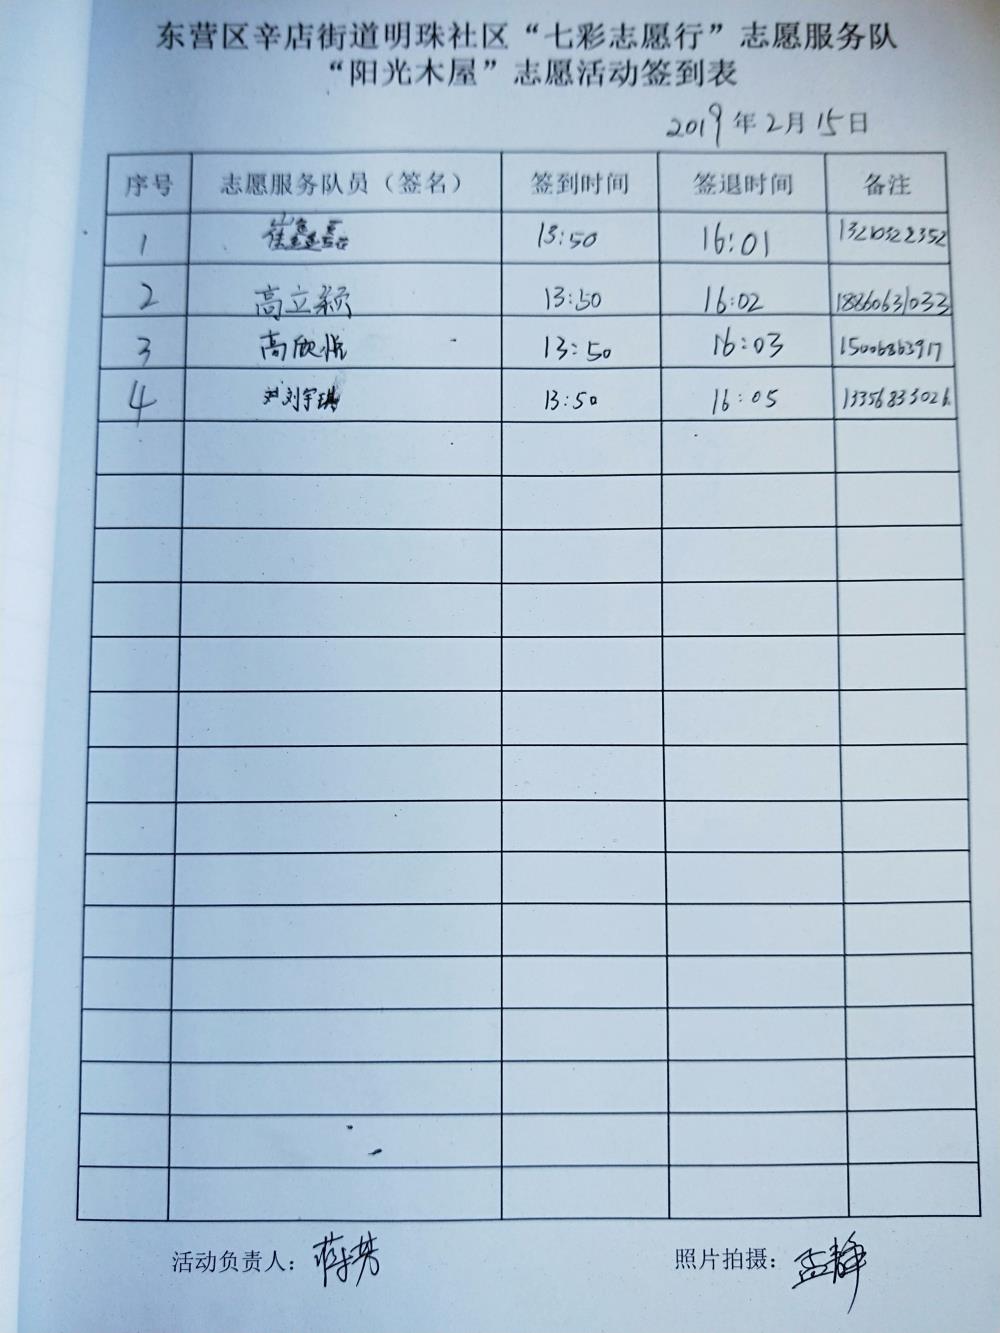 东营区辛店街道明珠社区“七彩志愿行”志愿服务队
“阳光木屋”志愿活动签到表
2019年2月15日
序号 志愿服务队员（签名） 签到时间 签退时间 备注
1 崔 13:50 16:01 13210322352
2 高立颖 13:50 16:02 18860631033
3 高欣悦 13:50 16:03 15006863917
4 刘宇琪 13:50 16:05 13356833026
活动负责人：
照片拍摄：孟静